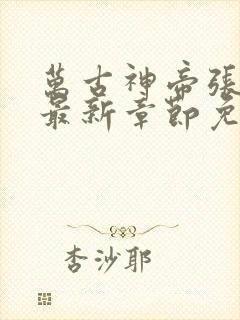 萬古神帝張
最新章節免
杏沙耶